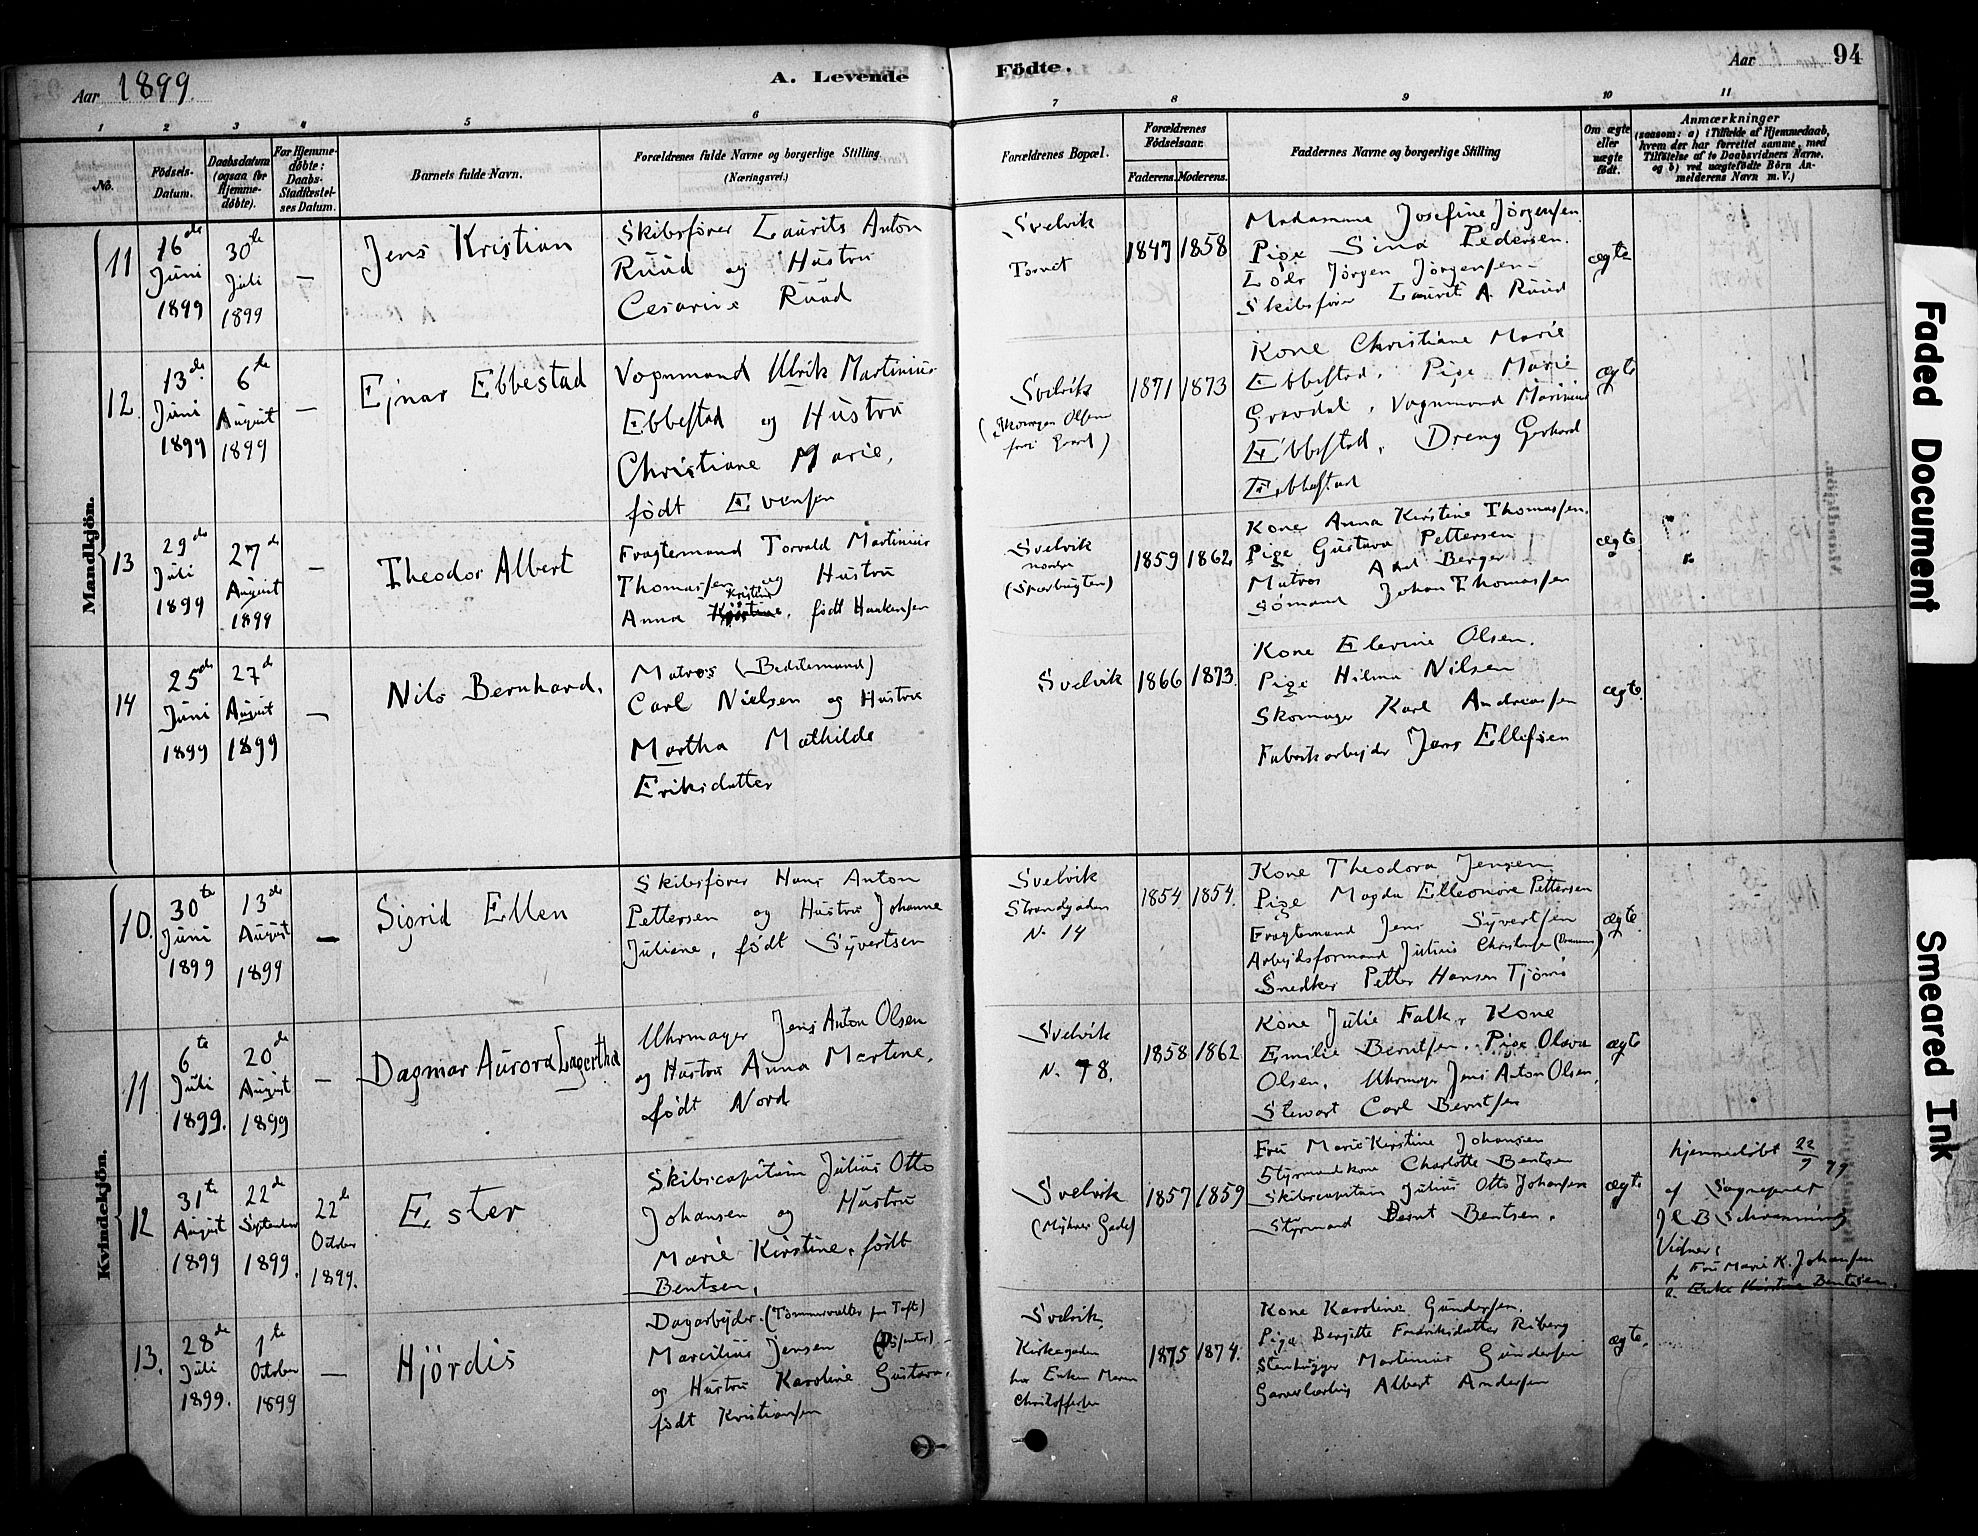 Aar 1899.
A. Levende
Fødte.
Aar
94
1 2 3 4 5 6 7 8 9 10 11
No.
Fødsels-Datum.
Daabsdatum (ogsaa for Hjemme-døbte).
For Hjemme-døbte: Daabs-Stadfæstel-ses Datum.
Barnets fulde Navn.
Forældrenes fulde Navne og borgerlige Stilling
(Næringsvei.)
Forældrenes Bopæl.
Forældrenes Fødselsaar.
Faderens. Moderens.
Faddernes Navne og borgerlige Stilling
Om ægte eller uægte født.
Anmærkninger
(saasom: a) i Tilfælde af Hjemmedaab,
hvem der har forrettet samme, med
Tilføielse af to Daabsvidners Navne,
og b) ved uægtefødte Børn An-
melderens Navn m. V.)
Mandkjøn.
11
16de
Juni
1899
30te
Juli
1899
—
Jens Kristian
Skibsfører Laurits Anton
Ruud og Hustru
Cesarine Ruud
Svelvik
Torvet
1847
1858
Madamme Josefine Jørgensen.
Pige Sina Pedersen.
Lods Jørgen Jørgensen
Skibsfører Laurit A. Ruud
ægte
12.
13de
Juni
1899
6te
August
1899
—
Ejnar Ebbestad
Vognmand Ulrik Martinius
Ebbestad og Hustru
Christiane Marie,
født Evensen
Svelvik
1871
1873
Kone Christiane Marie
Ebbestad, Pige Marie
Gravdal, Vognmand Marinius
Ebbestad, Dreng Gerhard
Ebbestad
ægte
13
29de
Juli
1899
27de
August
1899
—
Theodor Albert
Fragtemand Torvald Martinius
Thomassen og Hustru
Kristine
Anna født Haakensen
Svelvik
nordre
1859
1862
Kone Anna Kirstine Thomassen.
Pige Gustava Pettersen
Matros Axel Berger
Sømand Johan Thomassen
ægte
14
25de
Juni
1899
27de
August
1899
—
Nils Bernhard.
Matros
Carl Nielsen og Hustru
Martha Mathilde
Eriksdatter
Svelvik
1866
1873.
Kone Elevine Olsen.
Pige Hilma Nilsen
Skomager Karl Andreassen
Fabrikarbejder Jens Ellefsen
ægte.
Kvindekjön.
10.
30te
Juni
1899
13de
August
1899
—
Sigrid Ellen
Skibsfører Hans Anton
Pettersen og Hustru Johanne
Juliane, født Syvertsen
Svelvik
Strandgaden
N. 14
1854.
1854.
Kone Theodora Jensen
Pige Magda Elleonore Pettersen
Fragtemand Jens Syvertsen
Arbejdsformand Julius Christensen (Drammen)
Snedker Petter Hansen Tjømø
ægte.
11
6te
Juli
1899.
20de
August
1899
—
Dagmar Aurora Lagertha
Uhrmager Jens Anton Olsen
og Hustru Anna Martine,
født Nord
Svelvik
N. 78.
1858
1862
Kone Julie Falk, Kone
Emilie Berntsen. Pige Olava
Olsen, Uhrmager Jens Anton Olsen,
Stewart Carl Berntsen
ægte
12
31te
August
1899
22de
September
1899.
22de
October
1899.
Ester
Skibscapitain Julius Otto
Johansen og Hustru
Marie Kirstine, født
Bentsen.
Svelvik
1857
1859
Fru Marie Kirstine Johansen
Styrmandkone Charlotte Bentsen
Skibscapitain Julius Otto Johansen
Styrmand Bernt Bentsen.
ægte
hjemmedøbt 22/9 99
af Sogneprest
J C B Schrenning
Vidner:
Fru Marie K. Johansen
Enke Kirstine Bentsen.
13.
28de
Juli
1899.
1te
October
1899
—
Hjördis
Dagarbejder.
Marcilius Jensen
og Hustru Karoline Gustava,
født Kristiansen
Svelvik
Kirkegaden
hos Enken Maren
Christoffersen
1875
1874.
Kone Karoline Gundersen.
Pige Bergitte Fredriksdatter Riberg
Stenhugger Martinius Gundersen
Garverlærling Albert Andersen
ægte.
Faded Document
Smeared Ink